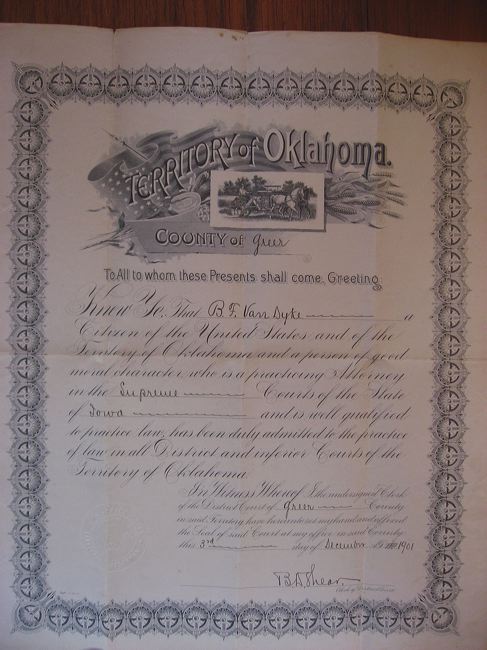 TERRITORY of Oklahoma.
COUNTY of Greer
To All to whom these Presents shall come, Greeting:
Know Ye, That B. F. Van Dyke a
Citizen of the United States and of the
Territory of Oklahoma and a person of good
moral character, who is a practicing Attorney
in the Supreme Courts of the State
of Iowa and is well qualified
to practice law, has been duly admitted to the practice
of law in all District and inferior Courts of the
Territory of Oklahoma.
In Witness Whereof I the undersigned Clerk
of the District Court of Greer County
in said Territory have hereunto set my hand and affixed
the Seal of said Court at my office in said County
this 3rd day of December 1901
Clerk of District Court